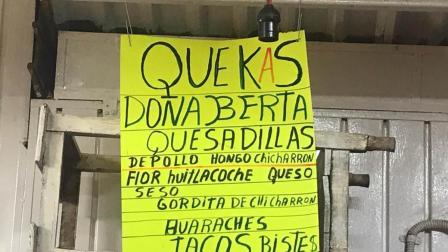 QUEKAS
DOÑA BERTA
QUESADILLAS
DE POLLO HONGO CHICHARRON
FlOR HUITLACOCHE QUESO
SESO
GORDITA DE CHICHARRON
HUARACHES
TACOS BISTES